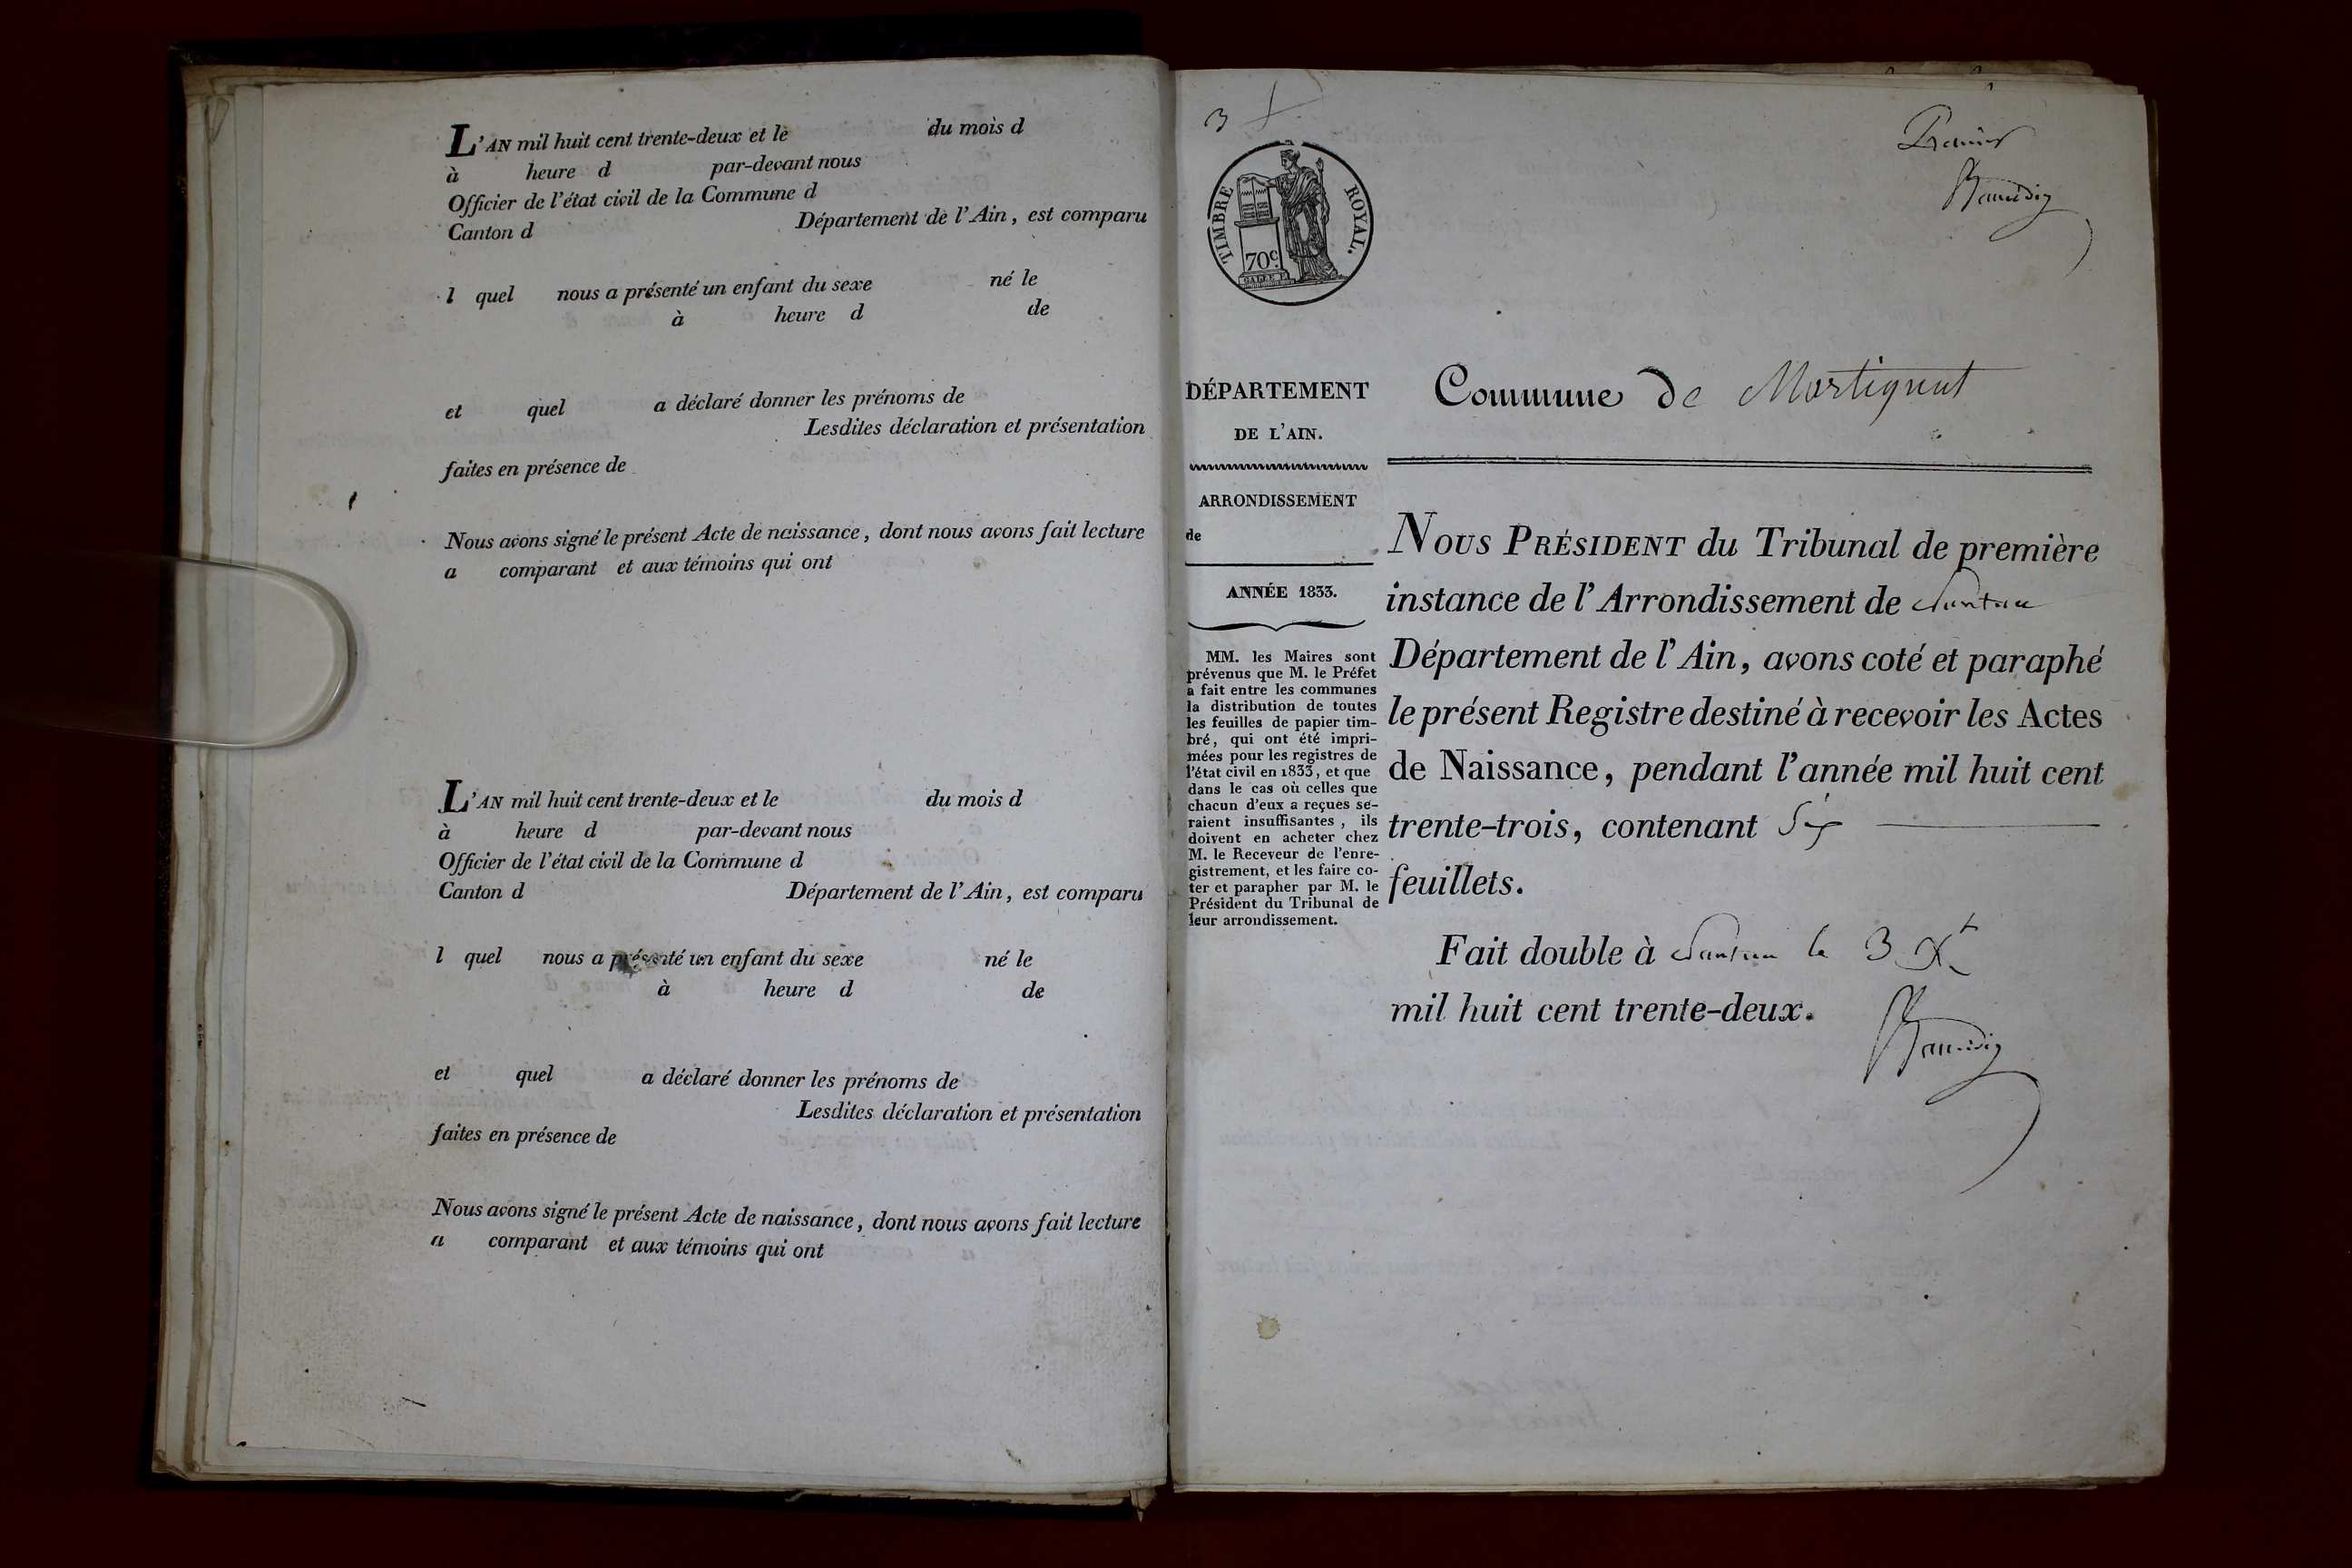 L'AN mil huit cent trente-deux et le du mois d
à heure d par-devant nous
Officier de l'état civil de la Commune d
Canton d Département de l'Ain, est comparu
l quel nous a présenté un enfant du sexe né le
à heure d de
et quel a déclaré donner les prénoms de
Lesdites déclaration et présentation
faites en présence de
Nous avons signé le présent Acte de naissance, dont nous avons fait lecture
a comparant et aux témoins qui ont
L'AN mil huit cent trente-deux et le du mois d
à heure d par-devant nous
Officier de l'état civil de la Commune d
Canton d Département de l'Ain, est comparu
l quel nous a présenté un enfant du sexe né le
à heure d de
et quel a déclaré donner les prénoms de
Lesdites déclaration et présentation
faites en présence de
Nous avons signé le présent Acte de naissance, dont nous avons fait lecture
a comparant et aux témoins qui ont
3
TIMBRE ROYAL.
70c.
Premier
DÉPARTEMENT
DE L'AIN.
ARRONDISSEMENT
de
ANNÉE 1833.
MM. les Maires sont
prévenus que M. le Préfet
a fait entre les communes
la distribution de toutes
les feuilles de papier tim-
bré, qui ont été impri-
mées pour les registres de
l'état civil en 1833, et que
dans le cas où celles que
chacun d'eux a reçues se-
raient insuffisantes, ils
doivent en acheter chez
M. le Receveur de l'enre-
gistrement, et les faire co-
ter et parapher par M. le
Président du Tribunal de
leur arrondissement.
Commune de Martignat
NOUS PRÉSIDENT du Tribunal de première
instance de l'Arrondissement de Nantua
Département de l'Ain, avons coté et paraphé
le présent Registre destiné à recevoir les Actes
de Naissance, pendant l'année mil huit cent
trente-trois, contenant Six
feuillets.
Fait double à Nantua le 3 Xbre
mil huit cent trente-deux.